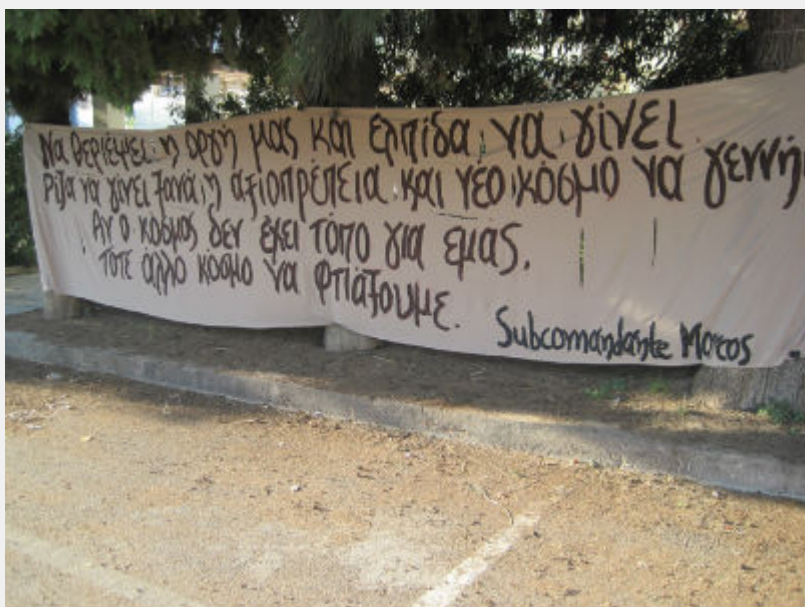 Να θεριέψει η οργή μας και ελπίδα να γίνει
Ρίζα να γίνει ξανά η αξιοπρέπεια και νέο κόσμο να
Αν ο κόσμος δεν έχει τόπο για εμάς,
τότε άλλο κόσμο να φτιάξουμε.
Subcomandante Marcos